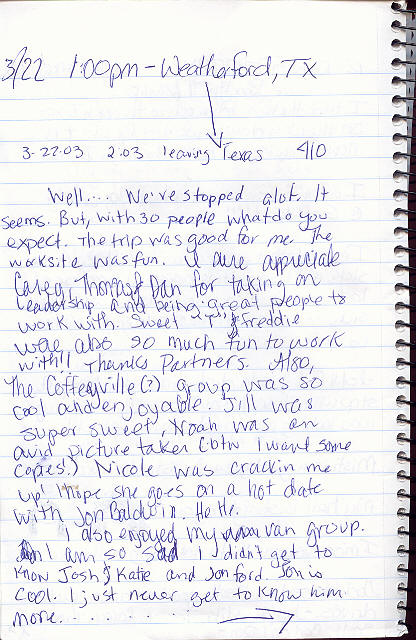 3/22 1:00pm - Weatherford, TX
3-22-03 2:03 leaving Texas 410
Well.... We've stopped alot. It
seems. But, with 30 people what do you
expect. The trip was good for me. The
worksite was fun. I sure appreciate
Casey, Thomas & Dan for taking on
leadership and being great people to
work with. Sweet "T" & Freddie
were also so much fun to work
with!! Thanks Partners. Also,
The Coffeyville(?) group was so
cool and enjoyable. Jill was
super sweet, Noah was an
avid picture taker (btw I want some
copies!) Nicole was crackin me
up! I hope she goes on a hot date
with Jon Baldwin. He He.
I also enjoyed my van group.
I am so sad I didn't get to
know Josh, Katie and Jon ford. Jon is
cool. I just never get to know him
more..........